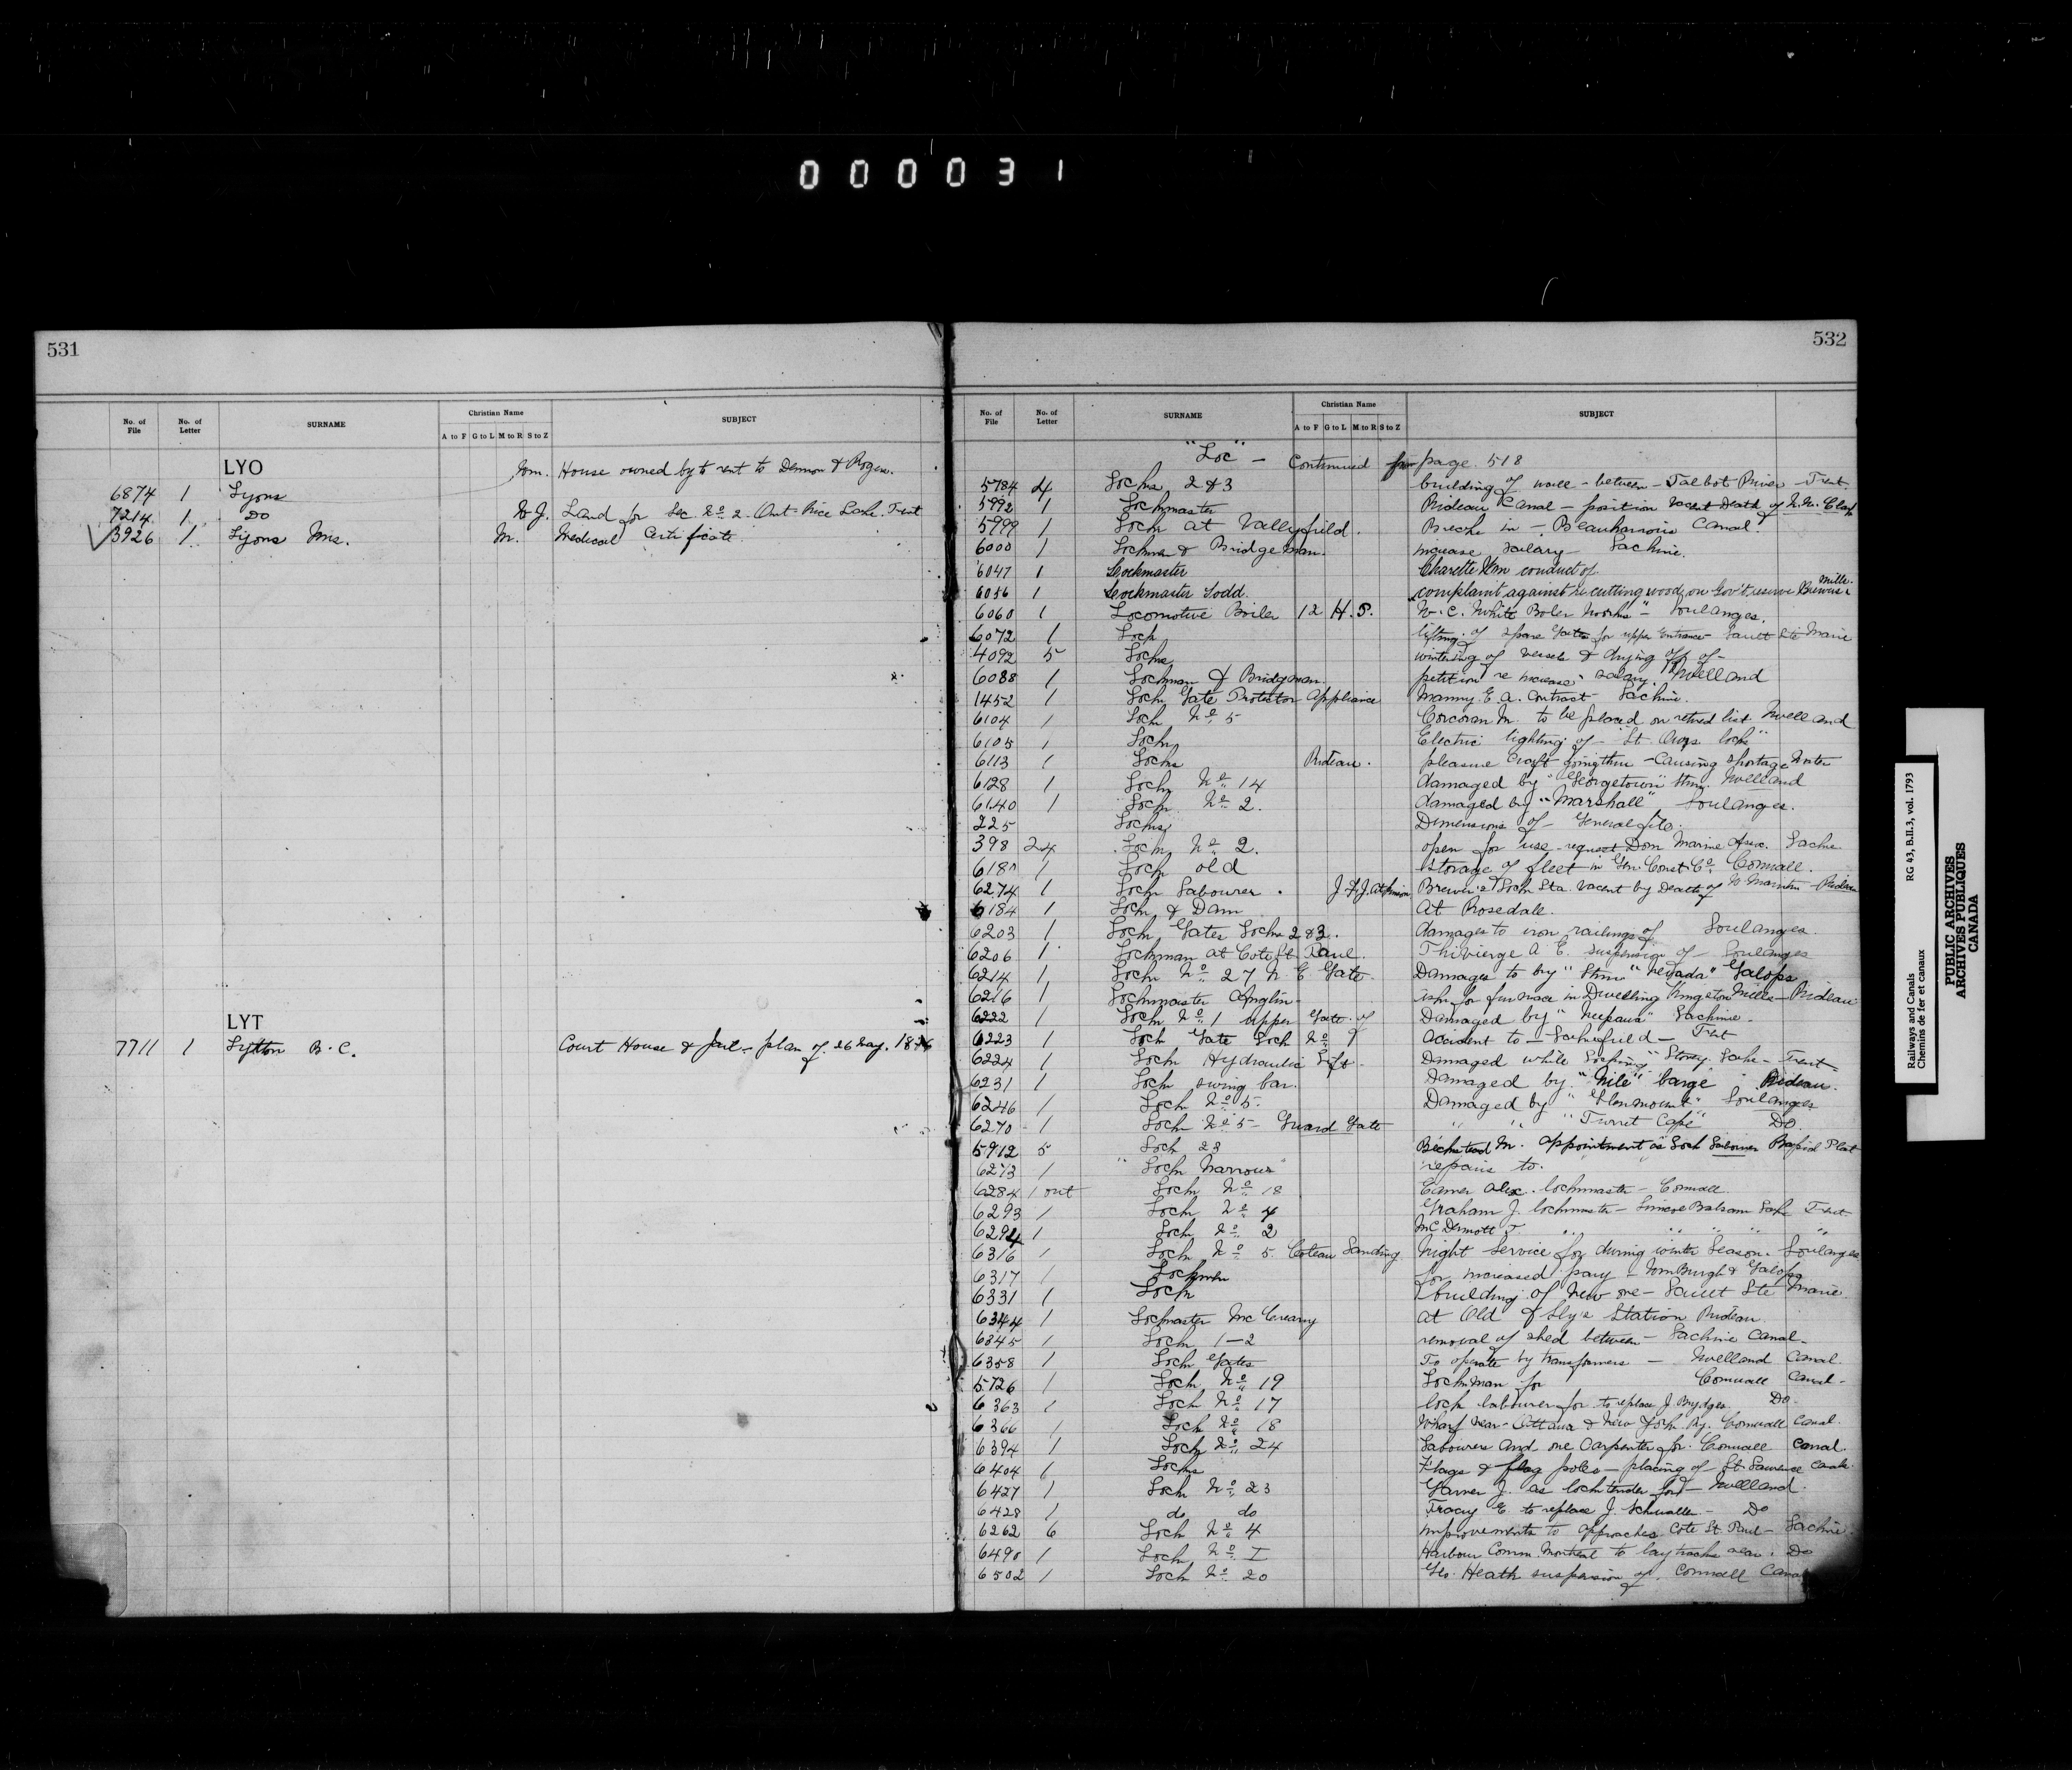 000031
531
No. of File No. of Letter SURNAME Christian Name A to F G to L M to R S to Z SUBJECT
LYO
6874 1 Lyons Wm. House owned by & rent to Dennon & Rogers.
7214 1 Do W.J. Land for Sec. No 2. Ont-Rice Lake. Trent
3926 1 Lyons Mrs. M. Medical Certificate
LYT
7711 1 Lytton B.C. Court House & Jail - plan of. 26 May.
532
No. of File No. of Letter SURNAME Christian Name A to F G to L M to R S to Z SUBJECT
"Loc" - Continued from page 518
5784 4 Locks 2 & 3 building of wall - between - Talbot River - Trent.
5992 1 Lockmaster Rideau Canal - position vacant Death of
5999 1 Lock at Valleyfield. Break in - Beauharnois Canal.
6000 1 Lockman & Bridgeman. increase salary Lachine.
6047 1 Lockmaster Charette Wm conduct of
6056 1 Lockmaster Todd. complaint against re cutting wood on Gov't reserve Brewers Mills.
6060 1 Locomotive Boiler 12 H.P. W.C. White Boiler Works" - Soulanges.
6072 1 Lock lifting of spare Gates for upper entrance Sault Ste Marie
4092 5 Locks wintering of vessels & drying off of -
6088 1 Lockman & Bridgeman petition re increase salary. Welland
1452 1 Lock Gate Protector Appliance Manny E.A. Contract - Lachine.
6104 1 Lock No 5 Corcoran M. to be placed on retired list. Welland
6105 1 Lock Electric lighting of - St. Ours lock"
6113 1 Locks Rideau. pleasure craft going thru - Causing shortage Water
6128 1 Lock No 14 damaged by "Georgetown" Stmr. Welland
6140 1 Lock No 2. damaged by "Marshall" Soulanges.
225 Locks Dimensions of - General file.
398 24 Lock No 2. open for use - request Dom Marine Assoc. Lachine
618 1 Lock old Storage of fleet in Gen. Const. Co. Cornwall.
6274 1 Lock Labourer. J.F.J. Atkinson Brewer's Lock Sta. Vacant by Death of - Rideau
6184 1 Lock & Dam At Rosedale.
6203 1 Lock Gates Locks 2 & 3. damages to iron railings of Soulanges.
6206 1 Lockman at Cote St. Paul. Thivierge A E. suspension of - Soulanges
6214 1 Lock No 27 N.E Gate. Damages to by "Stmr" Nevada" Galops
6216 1 Lockmaster Anglin - ask for furnace in Dwelling Kingston Mills - Rideau
6222 1 Lock No 1 upper Gate. of Damaged by "Neepawa" Lachine.
6223 1 Lock Gate Lock No 9 Accident to - Lakefield - Trent
6224 1 Lock Hydraulic Lift - Damaged while Locking "Stoney Lake - Trent
6231 1 Lock swing bar. Damaged by "Nile" barge Rideau.
6246 1 Lock No 5. Damaged by "Glenmount" Soulanges
6270 1 Lock No 5 - Guard Gate " " "Turret Cape" Do.
5912 5 Lock 23 Beckstead M. Appointment as Lock Labourer Rapid Plat
6273 1 "Lock Narrows" repairs to.
6284 1 out Lock No 18 Eamer Alex. lockmaster - Cornwall
6293 1 Lock No 4 Graham J. lockmaster - Simcoe Balsam Lake Trent.
6294 1 Lock No 2 McDermott T. " " " " "
6316 1 Lock No 5. Coteau Landing Night Service for during winter Season. Soulanges
6317 1 Lockmen for increased pay - Wmsburgh & Galops
6331 1 Lock building of New one - Sault Ste Marie
6344 1 Lockmaster McCreary At Old & Sly's Station Rideau.
6345 1 Lock 1-2 removal of shed between - Lachine Canal -
6358 1 Lock Gates To operate by transformers - Welland Canal.
5726 1 Lock No 19 Lockman for Cornwall Canal -
6363 1 Lock No 17 lock labourer for to replace J Brydges. Do.
6366 1 Lock No 18 Wharf Near - Ottawa & New York Ry. Cornwall Canal.
6394 1 Lock No 24 Labourers and one Carpenter for. Cornwall Canal.
6404 1 Locks Flags & flag poles - placing of - St. Lawrence Canals.
6427 1 Lock No 23 Garner J. as locktender for - Welland.
6428 1 do do Tracy E. to replace J. Schwaller - Do
6262 6 Lock No 4 improvements to approaches Cote St. Paul - Lachine.
6490 1 Lock No I Harbour Comm. Montreal to lay tracks near. Do
6502 1 Lock No 20 Geo. Heath suspension of. Cornwall Canal
Railways and Canals RG 43, B.II.3, vol. 1793
Chemins de fer et canaux
PUBLIC ARCHIVES
ARCHIVES PUBLIQUES
CANADA